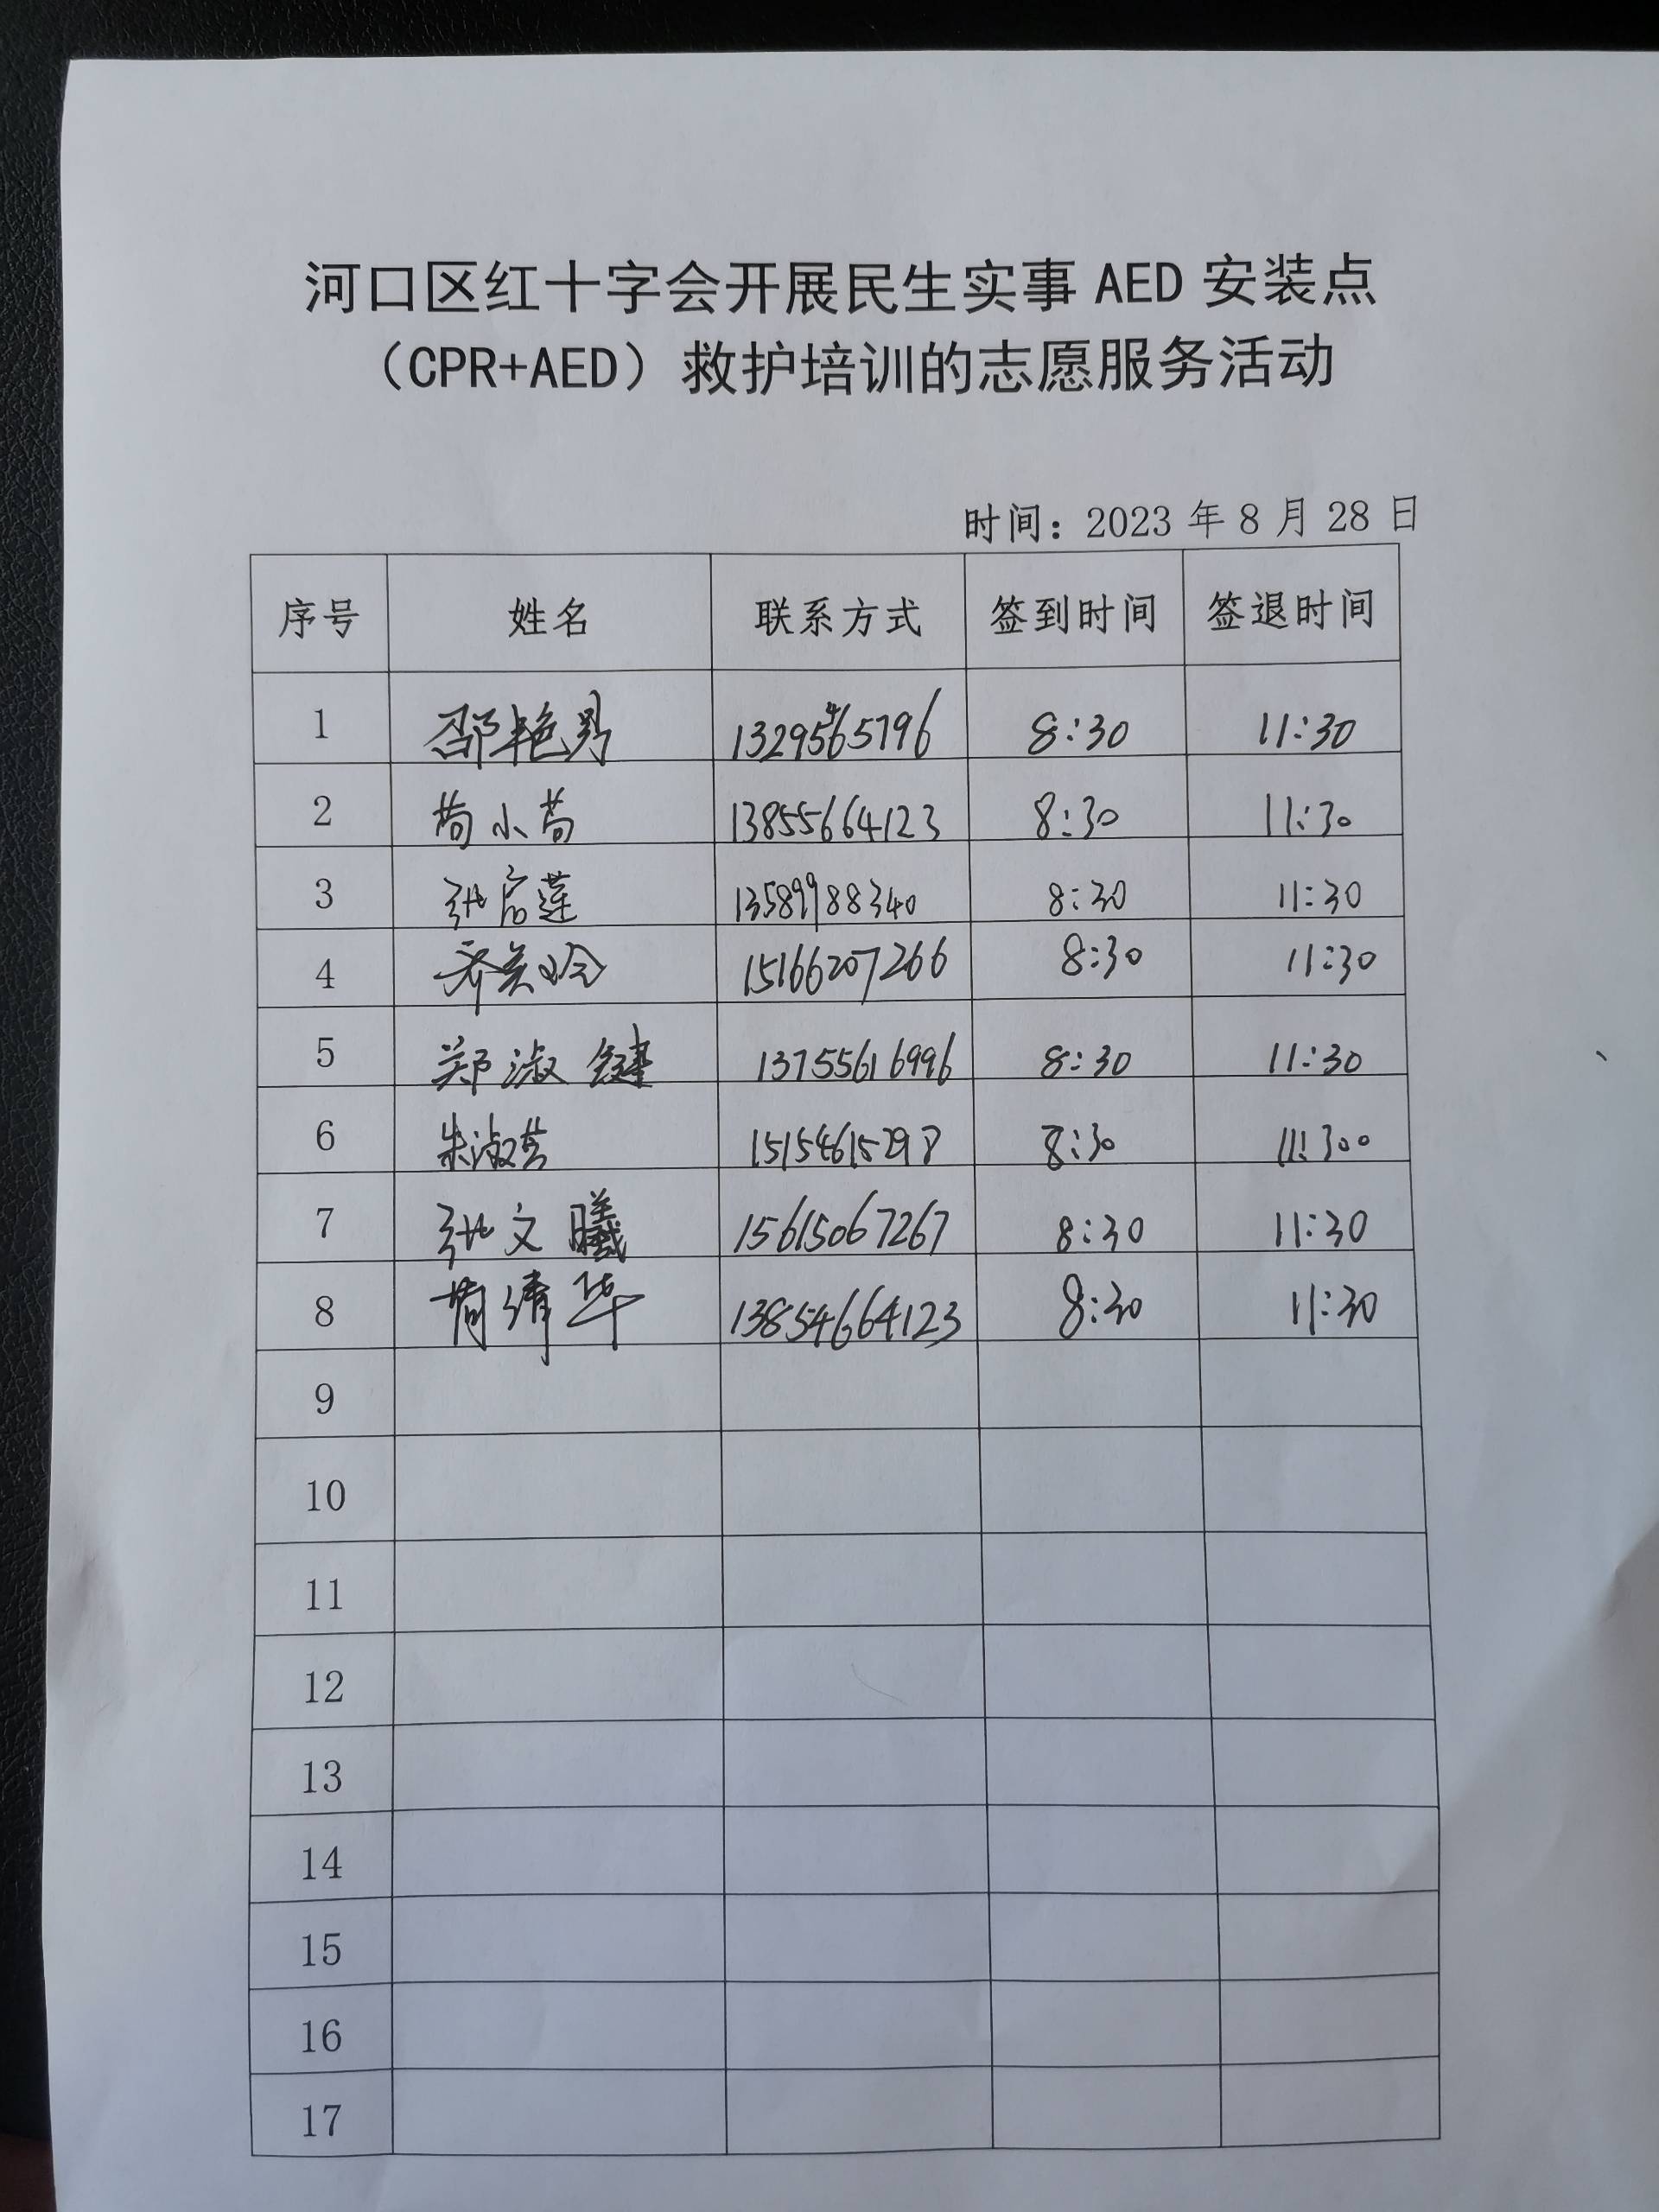 河口区红十字会开展民生实事 AED 安装点
（CPR+AED）救护培训的志愿服务活动
时间：2023 年 8 月 28 日
序号 姓名 联系方式 签到时间 签退时间
1 邵艳 8:30 11:30
2 小 13855664123 8:30 11:30
3 张启莲 13589988340 8:30 11:30
4 齐美玲 15166207266 8:30 11:30
5 郑淑键 13755616996 8:30 11:30
6 朱淑芸 15154615298 8:30 11:300
7 张文曦 15615067267 8:30 11:30
8 清华 13854664123 8:30 11:30
9
10
11
12
13
14
15
16
17